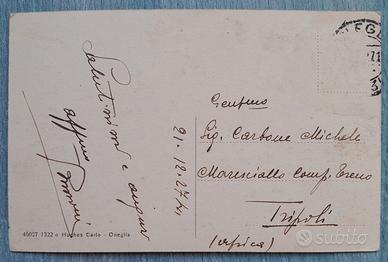 Salutissimi e auguri
affmo
21-12-27
Sig. Carbone Michele
Maresciallo Comp. Treno
Tripoli
(Africa)
46027 1322 a Hughes Carlo - Oneglia
subito